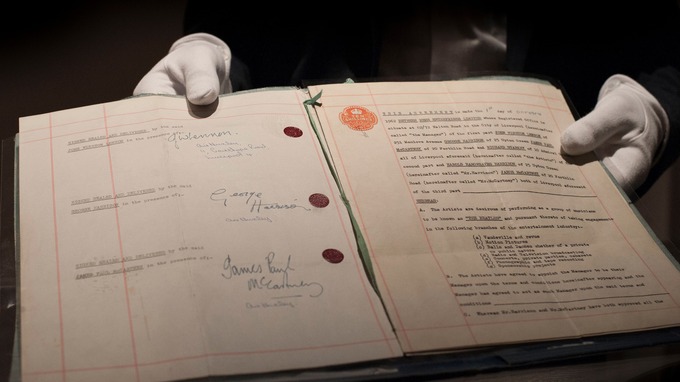 SIGNED SEALED AND DELIVERED by the said
JOHN WINSTON LENNON in the presence of:
JWLennon.
SIGNED SEALED AND DELIVERED by the said
GEORGE HARRISON in the presence of:
George Harrison
SIGNED SEALED AND DELIVERED by the said
JAMES PAUL McCARTNEY in the presence of:
James Paul McCartney
THIS AGREEMENT is made the day of
1962 BETWEEN NEMS ENTERPRISES LIMITED whose Registered Office is
situate at Walton Road in the City of Liverpool (hereinafter
called "the Manager") of the first part JOHN WINSTON LENNON of
251 Menlove Avenue GEORGE HARRISON of 25 Upton Green JAMES PAUL
McCARTNEY of 20 Forthlin Road and RICHARD STARKEY of 10 Admiral
all of Liverpool aforesaid (hereinafter called "the Artists") of the
second part and HAROLD HARGREAVES HARRISON of 25 Upton Green
(hereinafter called "Mr.Harrison") JAMES McCARTNEY of 20 Forthlin
Road (hereinafter called "Mr.McCartney") both of Liverpool aforesaid
of the third part
WHEREAS:
A. The Artists are desirous of performing as a group of musicians
to be known as "THE BEATLES" and pursuant thereto of taking engagements
in the following branches of the entertainment industry.
(a) Vaudeville and revue
(b) Motion Pictures
(c) Balls and dances whether of a private
or public nature
(d) Radio and Television broadcasting
(e) Concerts, private parties, cabarets
(f) Phonographic and tape recording
(g)
B. The Artists have agreed to appoint the Manager to be their
Manager upon the terms and conditions hereinafter appearing and the
Manager has agreed to act as such Manager upon the said terms and
conditions
C. Whereas Mr.Harrison and Mr.McCartney have both approved all the